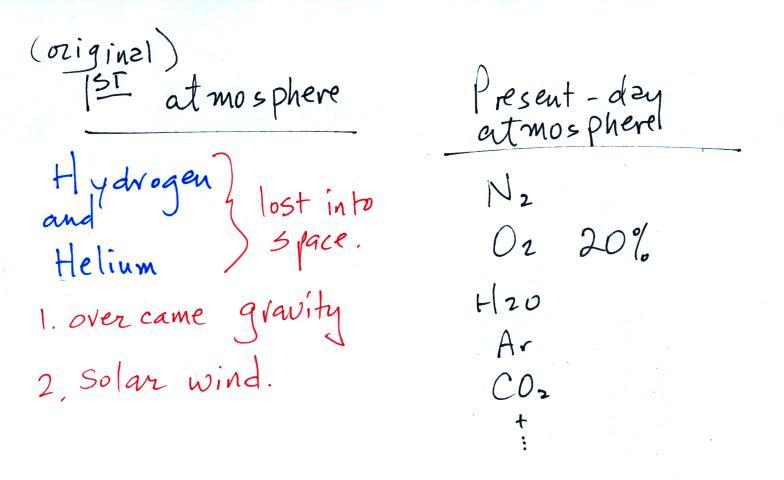 (original)
1ST atmosphere
Hydrogen
and
Helium
lost into
space.
1. overcame gravity
2. solar wind.
Present-day
atmosphere
N2
O2 20%
H2O
Ar
CO2
+
⋮